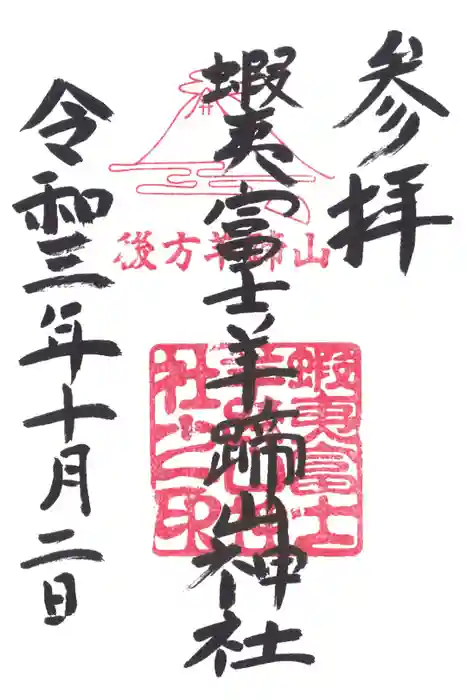 参拝
蝦夷富士羊蹄山神社
令和三年十月二日
山蹄羊方後
蝦夷富士
羊蹄山神
社之印